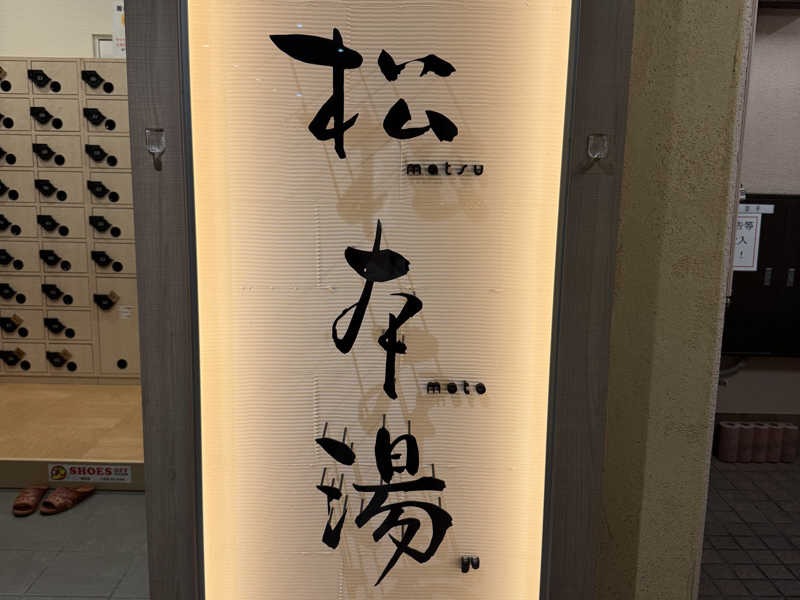 松
matsu
本
moto
湯
yu
SHOES OFF